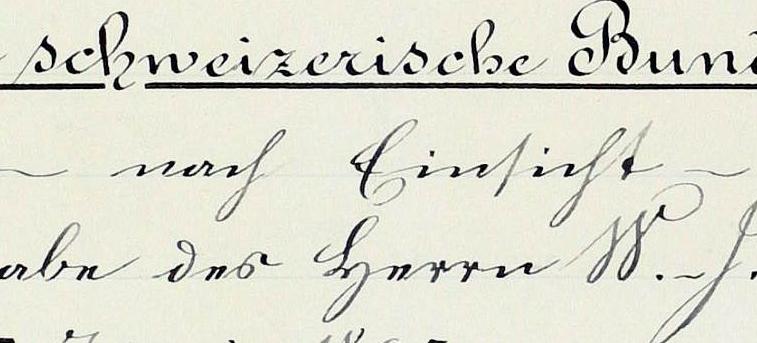 schweizerische Bund
– nach Einsicht –
abe des Herrn W. J.